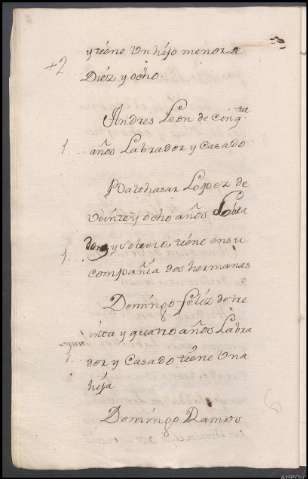 42
y tiene un hijo menor de
Diez y ocho.
Andres Leon de cinq.ta
1. años Labrador y Casado
Balthasar Lopez de
veinte y ocho años Labra
1. dor y soltero, tiene en su
compañia dos hermanas
Domingo Feliz de tre
inta y quatro años Labra
dor y Casado tiene una
hija
Domingo Ramos